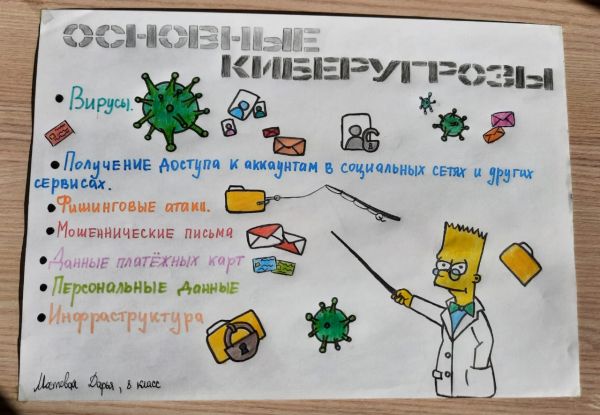 ОСНОВНЫЕ
КИБЕРУГРОЗЫ
• Вирусы.
• Получение доступа к аккаунтам в социальных сетях и других
сервисах.
• Фишинговые атаки.
• Мошеннические письма
• Данные платёжных карт
• Персональные данные
• Инфраструктура
Дарья, 8 класс